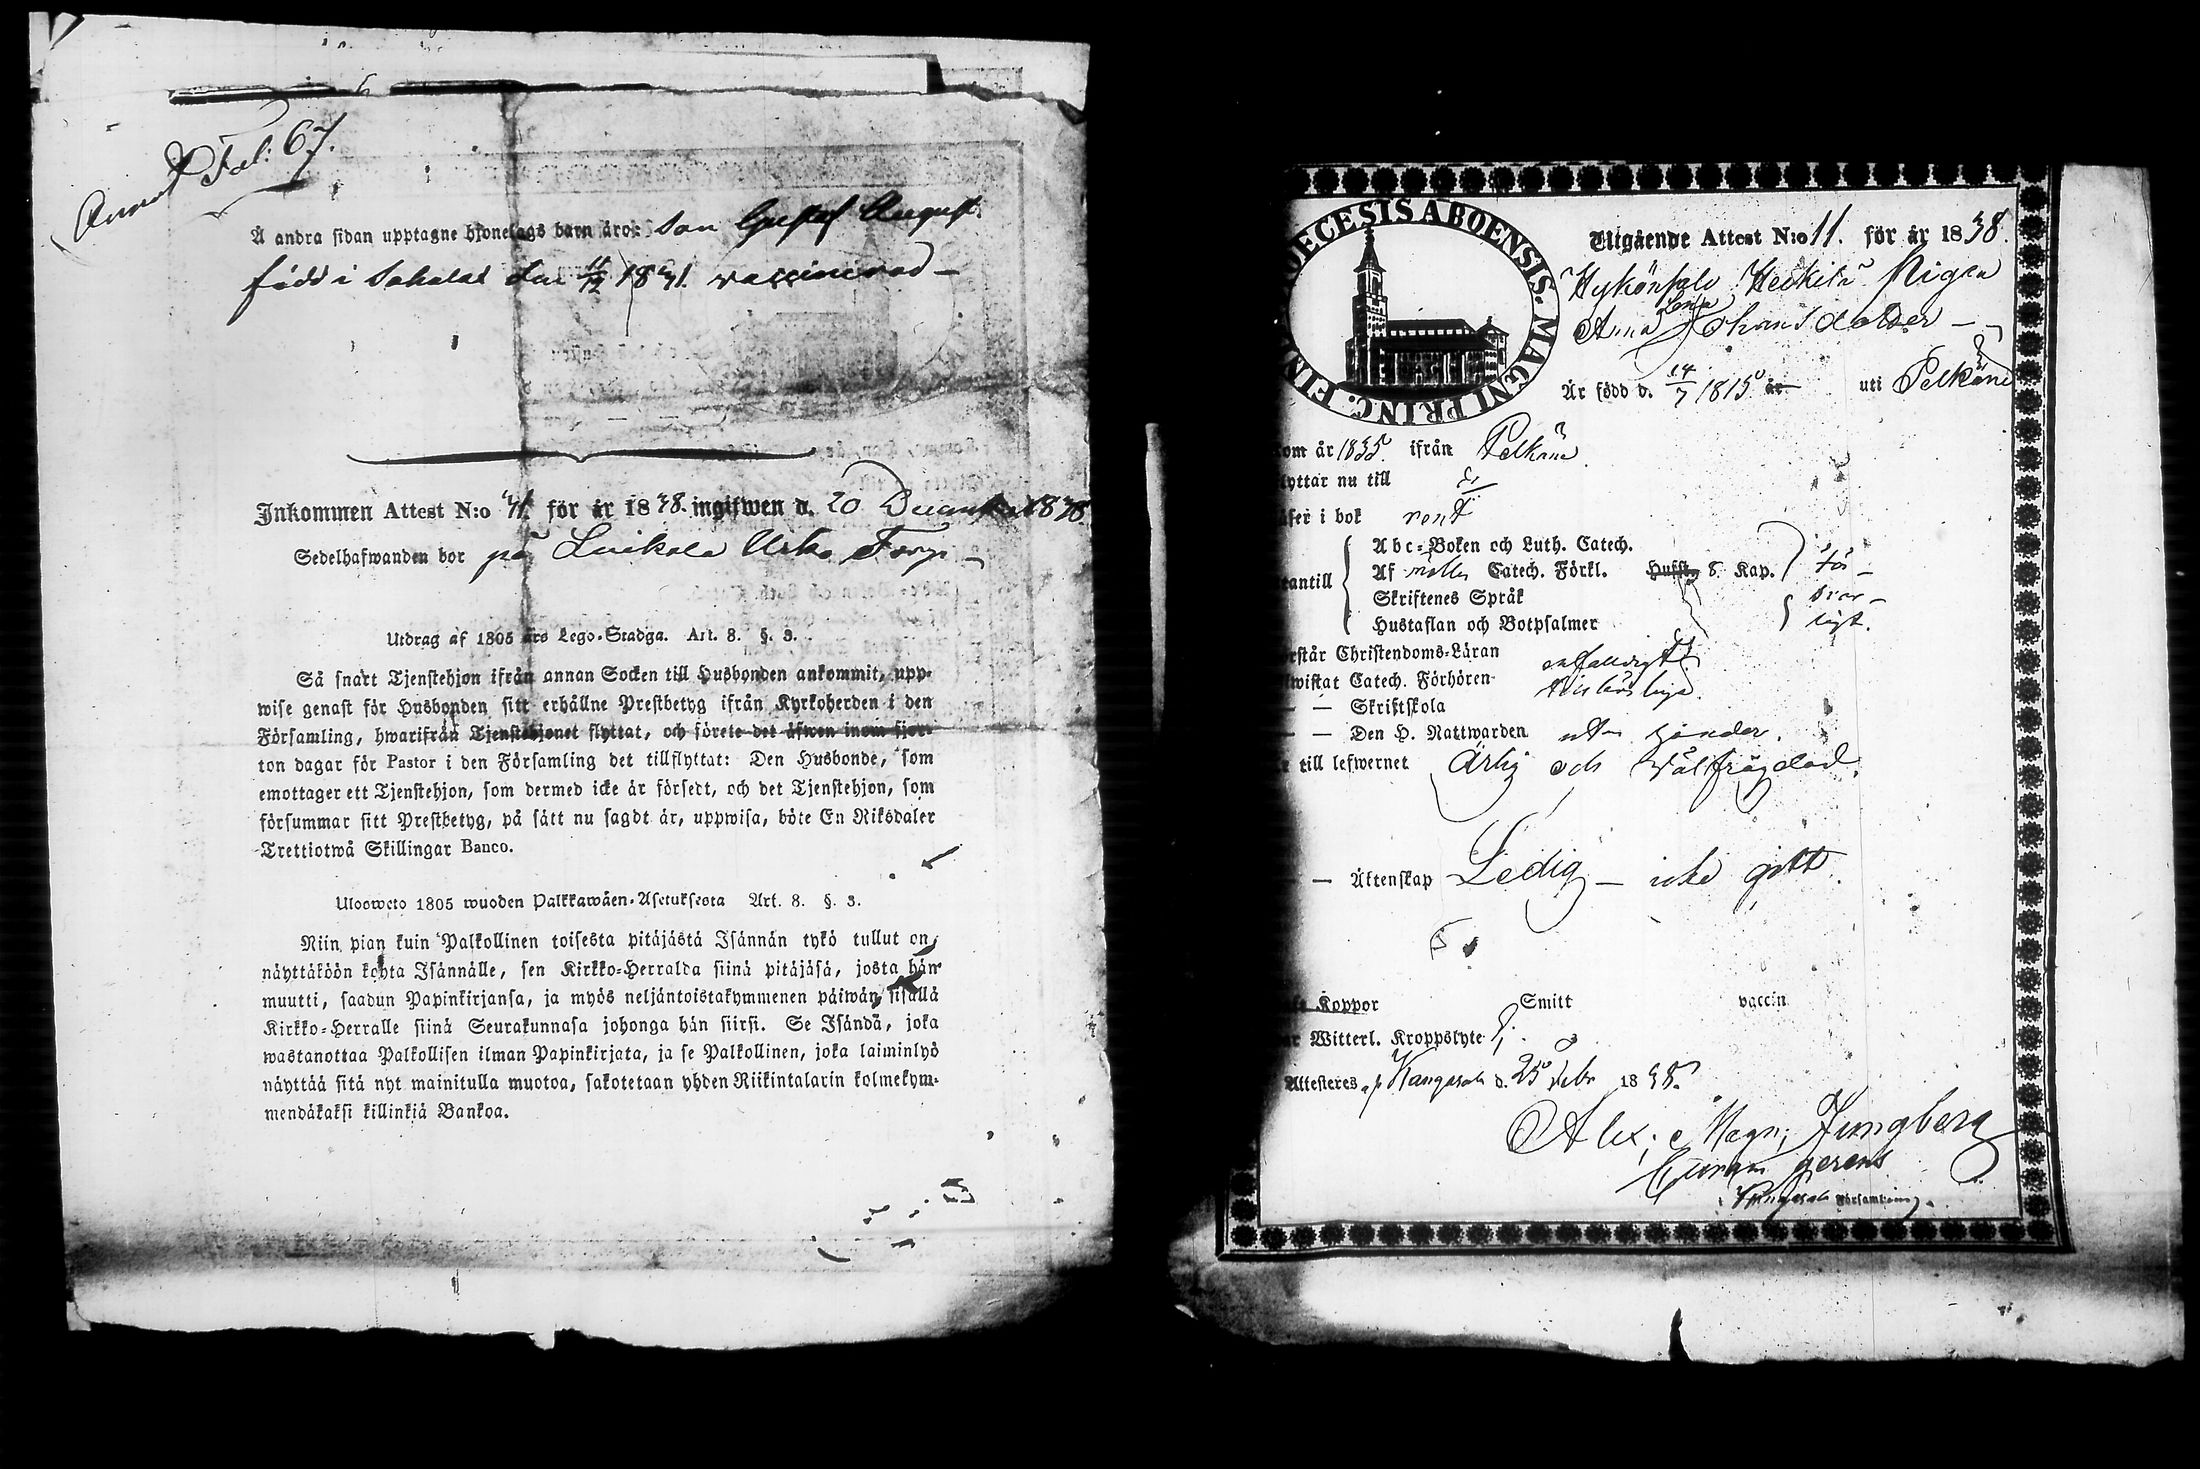 Fol: 67.
Å andra sidan upptagne hjonelags barn äro: Son Gustaf August
född i Sahalax den 11/12 1831. vaccinerad –
Inkommen Attest N:o 41. för år 1838. ingifwen d. 20 December 1838.
Sedelhafwanden bor på Torp
Utdrag af 1805 års Lego-Stadga. Art. 8. §. 3.
Så snart Tjenstehjon ifrån annan Socken till Husbonden ankommit, upp-
wise genast för Husbonden sitt erhållne Prestbetyg ifrån Kyrkoherden i den
Församling, hwarifrån Tjenstehjonet flyttat, och förete det äfwen inom fjor-
ton dagar för Pastor i den Församling det tillflyttat: Den Husbonde, som
emottager ett Tjenstehjon, som dermed icke är försedt, och det Tjenstehjon, som
försummar sitt Prestbetyg, på sätt nu sagdt är, uppwisa, böte En Riksdaler
Trettiotwå Skillingar Banco.
Uloswcto 1805 wuoden Palkkawäen-Asetuksesta Art. 8. §. 3.
Niin pian kuin Palkollinen toisesta pitäjästä Isännän tykö tullut on,
näyttäköön kohta Isännälle, sen Kirkko-Herralda siinä pitäjäsä, josta hän
muutti, saadun Papinkirjansa, ja myös neljäntoistakymmenen päiwän sisällä
Kirkko-Herralle siinä Seurakunnasa johonga hän siirsi. Se Isändä, joka
wastanottaa Palkollisen ilman Papinkirjata, ja se Palkollinen, joka laiminlyö
näyttää sitä nyt mainitulla muotoa, sakotetaan yhden Riikintalarin kolmekym-
mendäkaksi killinkiä Bankoa.
DIOECESIS ABOENSIS. MAGNI PRINC. FIN
Utgående Attest N:o 11. för år 1838.
Heikkilä Pigan
Anna Lena Johansdotter –
Är född d. 14/7 1815 år uti Pelkäne
om år 1835 ifrån Pelkäne
lyttar nu till
äser i bok rent
Abc-Boken och Luth. Catech.
tantill Af Catech. Förkl. Hufst. 8 Kap. för-
Skriftenes Språk svar-
Hustaflan och Botpsalmer ligt.
rstår Christendoms-Läran enfaldigt
wistat Catech. Förhören
— — Skriftskola
— — Den H. Nattwarden
till lefwernet Ärlig och Välfrägdad.
— Äktenskap Ledig – icke gift
Koppor Smitt vaccin
Witterl. Kroppslyte
Attesteras af Kangasala d. 25 Febr 1838.
Alex: Magn: Ljungberg
Curam gerens
Kangasala Församling.